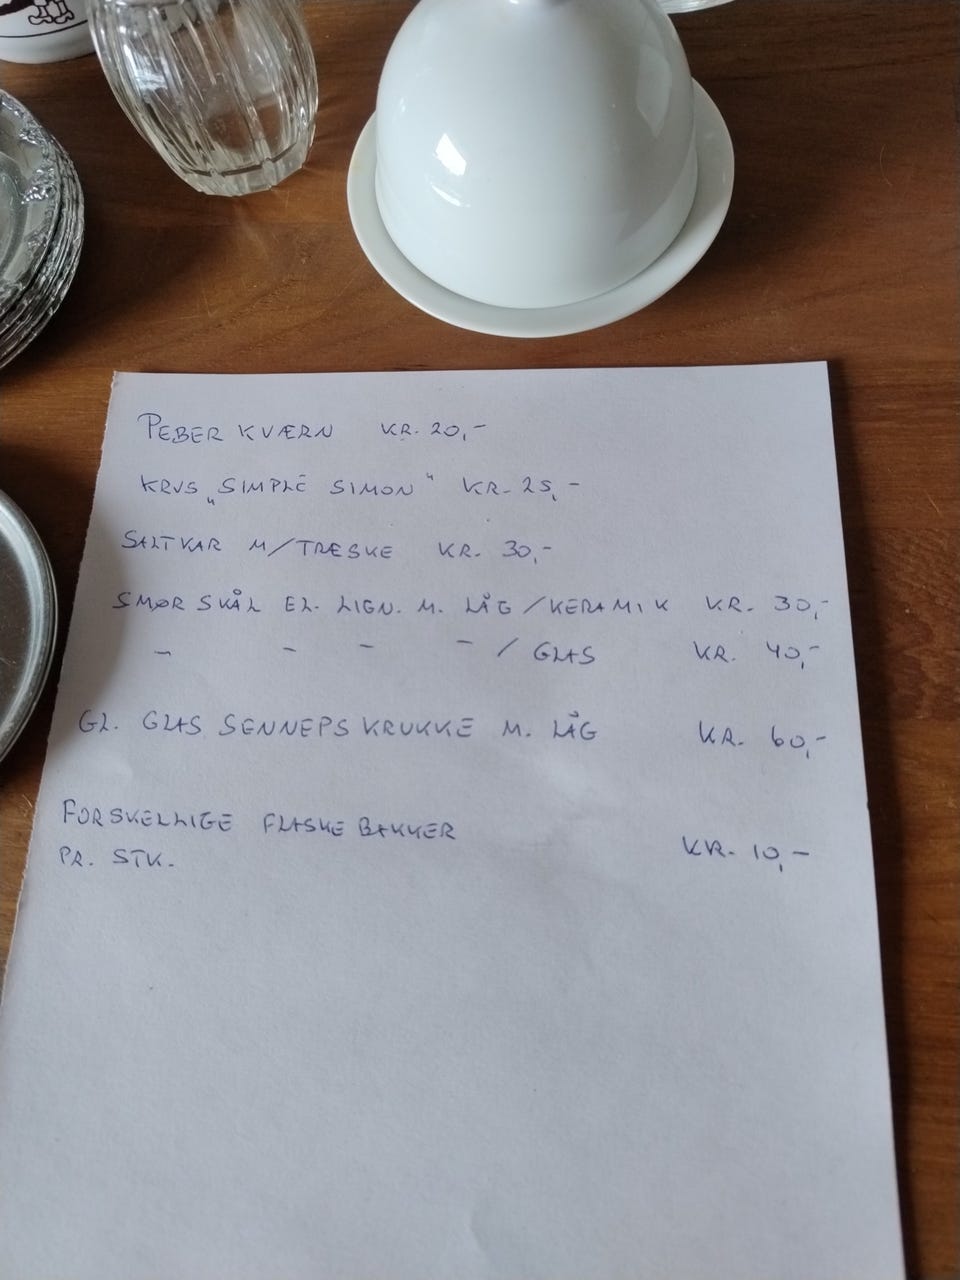 PEBER KVÆRN KR. 20,-
KRUS „SIMPLE SIMON" KR. 25,-
SALTKAR M/TRÆSKE KR. 30,-
SMØR SKÅL EL. LIGN. M. LÅG/KERAMIK KR. 30,-
- - - - / GLAS KR. 40,-
GL. GLAS SENNEPS KRUKKE M. LÅG KR. 60,-
FORSKELLIGE FLASKE BAKKER
PR. STK. KR. 10,-